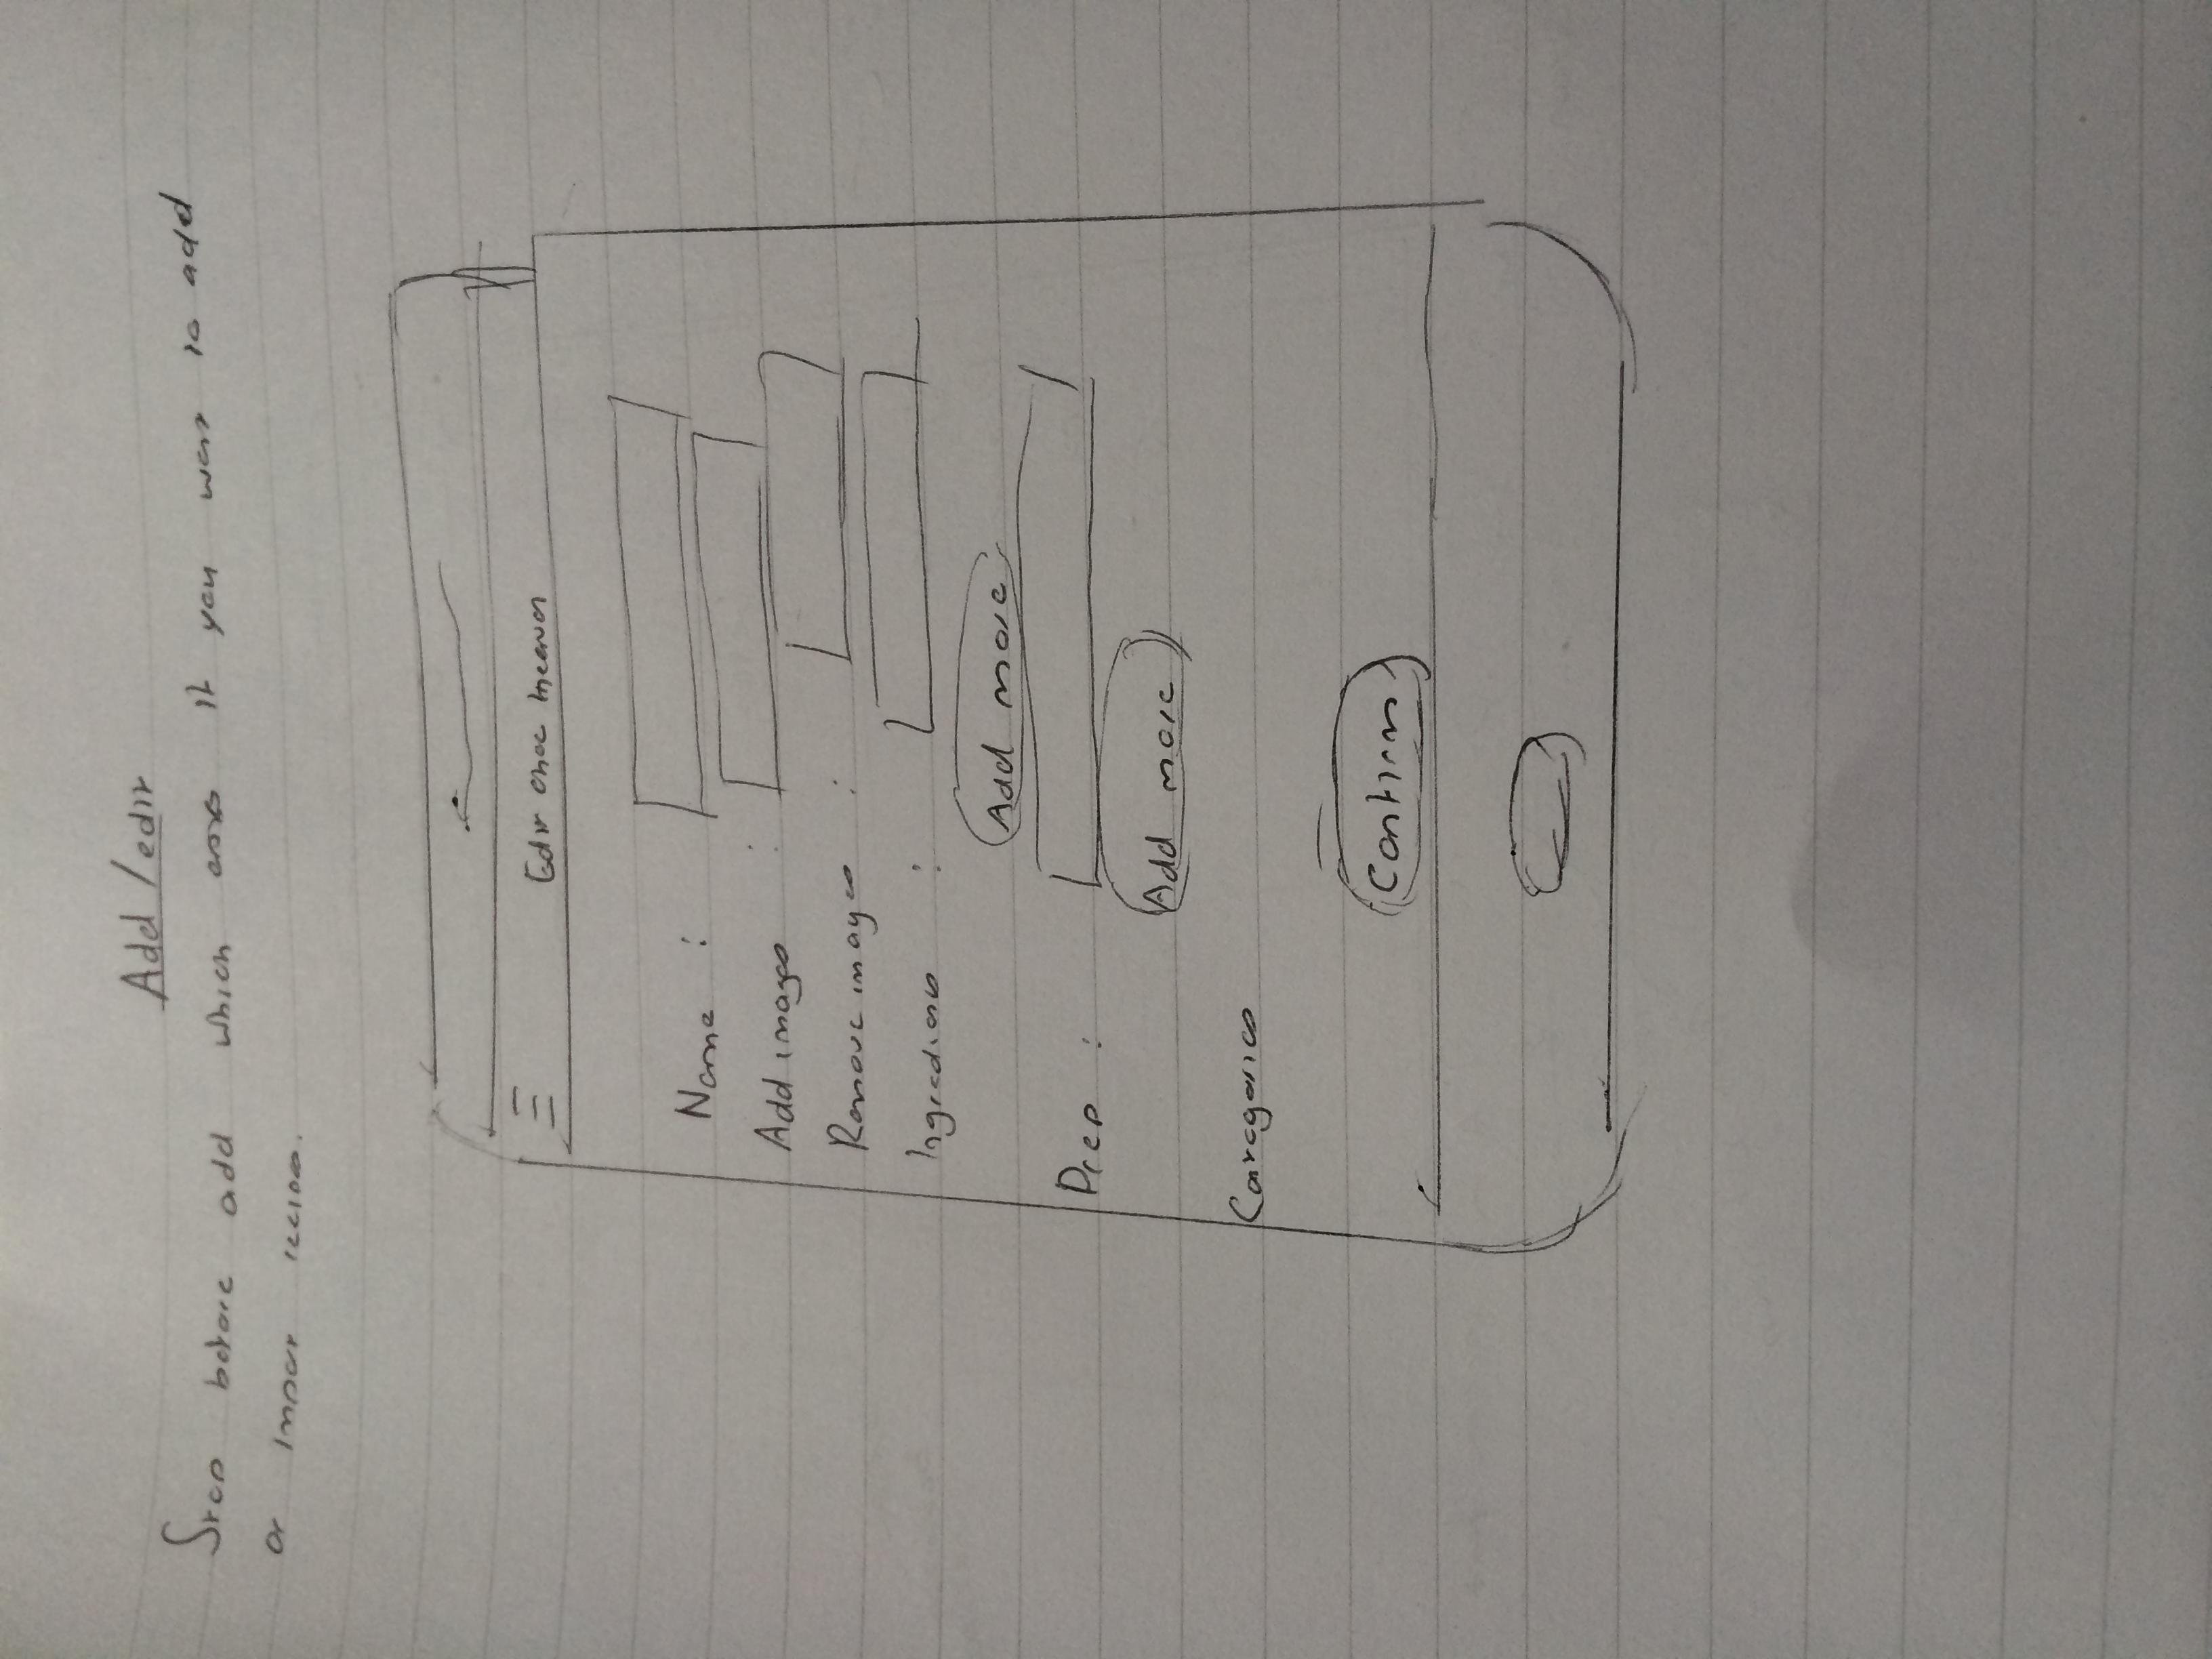 Add / edit
Step before add which asks if you want to add
or import recipe.
Edit choc heaven
Name :
Add images :
Remove images :
Ingredients :
Add more
Prep :
Add more
Categories
Confirm